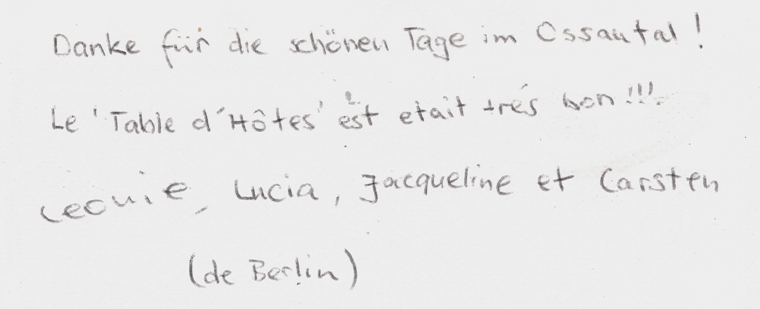 Danke für die schönen Tage im Ossautal!
Le 'Table d'Hôtes' est etait trés bon!!!
Leonie, Lucia, Jacqueline et Carsten
(de Berlin)